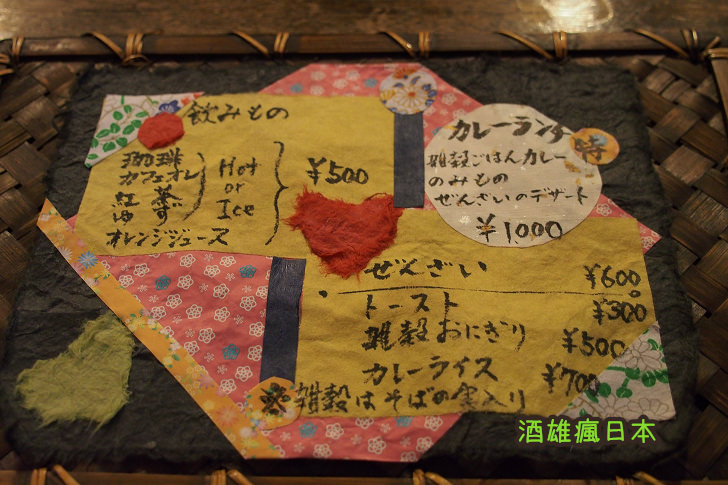 飲みもの
珈琲
カフェオレ
紅茶
ゆず
オレンジジュース
Hot
or
Ice
¥500
カレーランチ
特
雑穀ごはんカレー
のみもの
ぜんざいのデザート
¥1,000
ぜんざい ¥600
トースト ¥300
雑穀おにぎり ¥500
カレーライス ¥700
※雑穀はそばの実入り
酒雄瘋日本